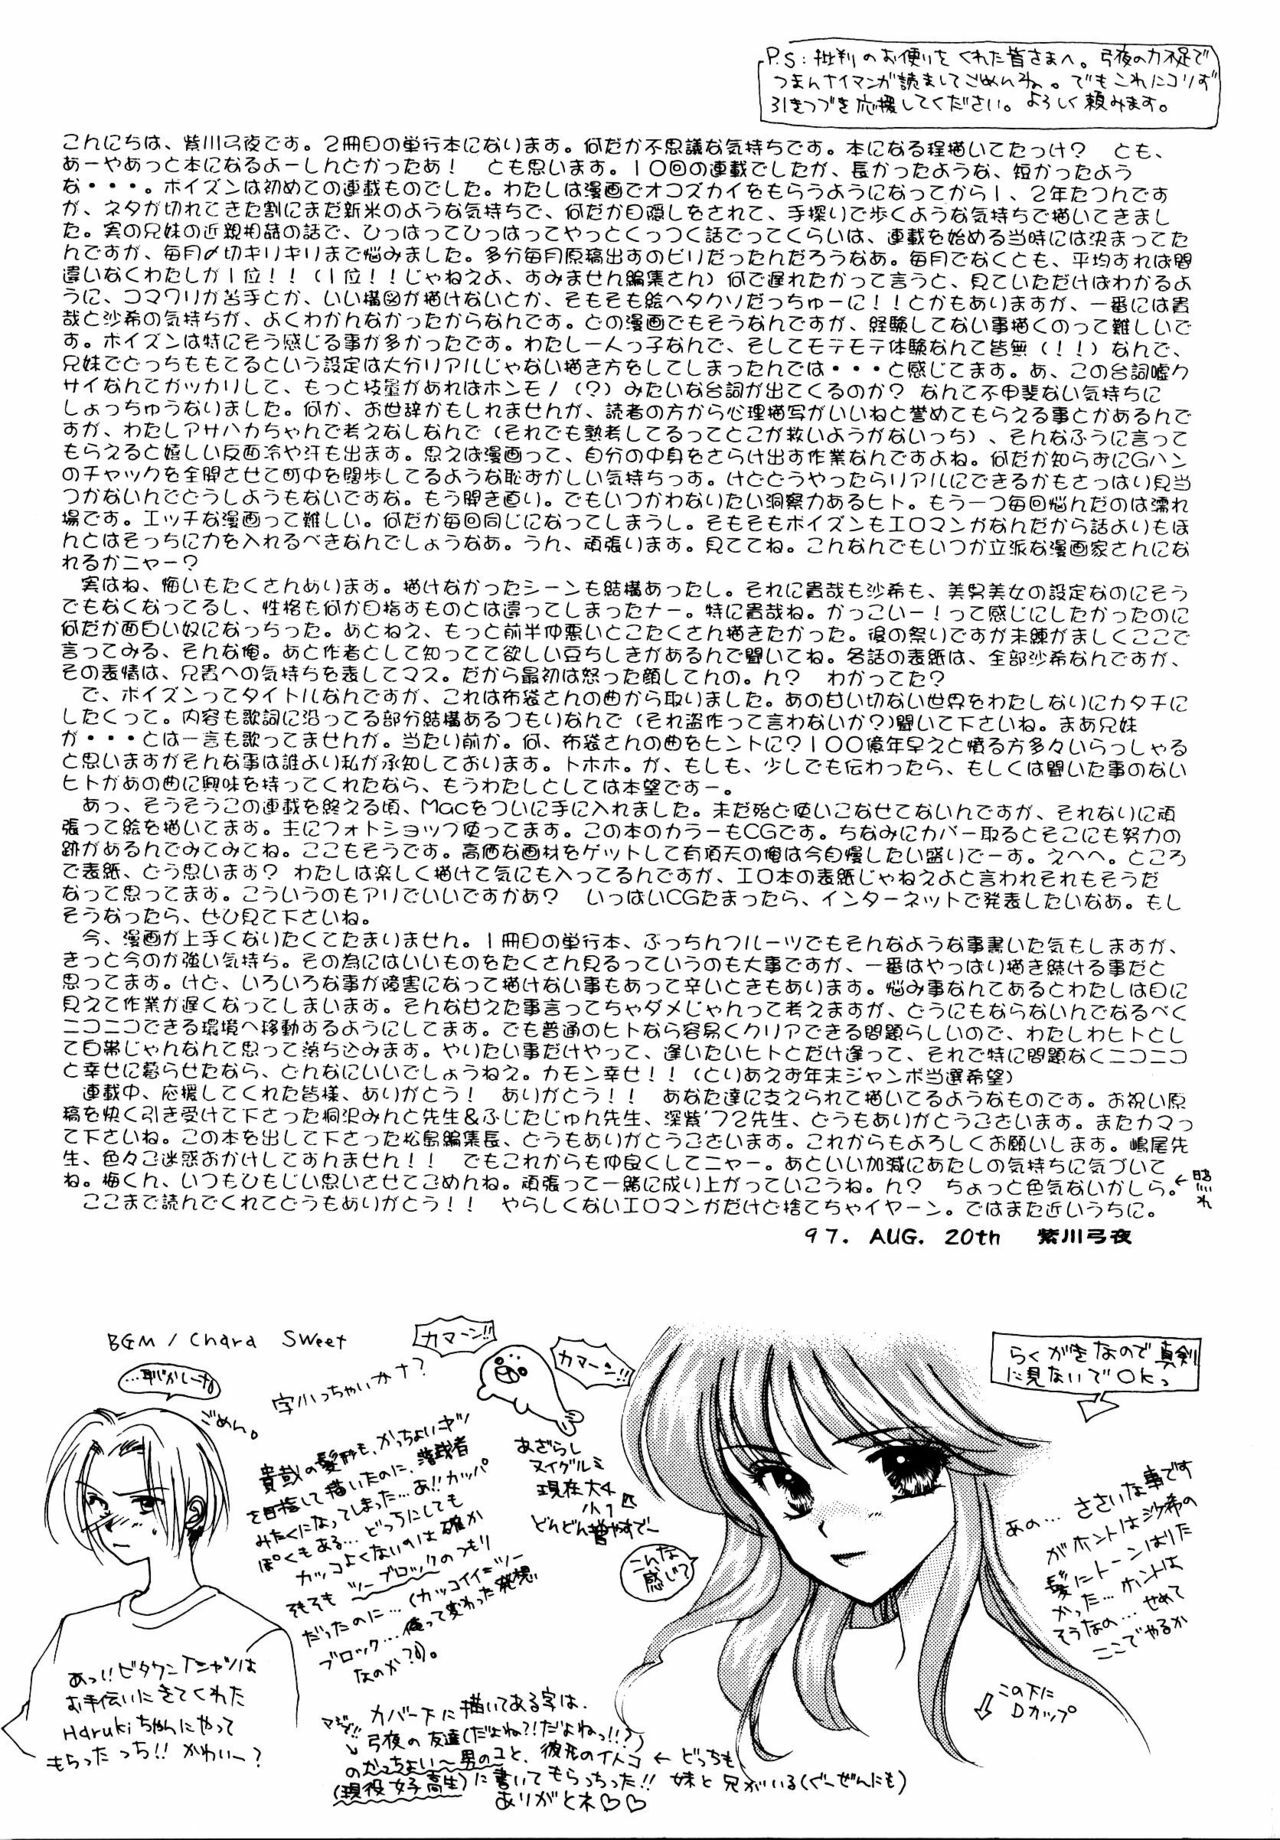 P.S:批判のお便りをくれた皆さまへ。弓夜の力不足で
つまんナイマンガ読ましてごめんね。でもこれにコリず
引きつづき応援してください。よろしく頼みます。
こんにちは、紫川弓夜です。2冊目の単行本になります。何だか不思議な気持ちです。本になる程描いてたっけ? とも、
あーやあっと本になるよーしんどかったあ! とも思います。10回の連載でしたが、長かったような、短かったよう
な・・・。ポイズンは初めての連載ものでした。わたしは漫画でオコズカイをもらうようになってから1、2年たつんです
が、ネタが切れてきた割にまだ新米のような気持ちで、何だか目隠しをされて、手探りで歩くような気持ちで描いてきまし
た。実の兄妹の近親相姦の話で、ひっぱってひっぱってやっとくっつく話でってくらいは、連載を始める当時には決まってた
んですが、毎月〆切キリキリまで悩みました。多分毎月原稿出すのビリだったんだろうなあ。毎月でなくとも、平均すれば間
違いなくわたしが1位!!(1位!!じゃねえよ、すみません編集さん)何で遅れたかって言うと、見ていただけばわかるよ
うに、コマワリが苦手とか、いい構図が描けないとか、そもそも絵ヘタクソだっちゅーに!!とかもありますが、一番には貴
哉と沙希の気持ちが、よくわかんなかったからなんです。どの漫画でもそうなんですが、経験してない事描くのって難しいで
す。ポイズンは特にそう感じる事が多かったです。わたし一人っ子なんで、そしてモテモテ体験なんて皆無(!!)なんで、
兄妹でどっちももてるという設定は大分リアルじゃない描き方をしてしまったんでは・・・と感じてます。あ、この台詞嘘ク
サイなんてガッカリして、もっと技量があればホンモノ(?)みたいな台詞が出てくるのか? なんて不甲斐ない気持ちに
しょっちゅうなりました。何か、お世辞かもしれませんが、読者の方から心理描写がいいねと誉めてもらえる事とかあるんで
すが、わたしアサハカちゃんで考えなしなんで(それでも熟考してるってとこが救いようがないっち)、そんなふうに言って
もらえると嬉しい反面冷や汗も出ます。思えば漫画って、自分の中身をさらけ出す作業なんですよね。何だか知らずにGパン
のチャックを全開させて町中を闊歩してるような恥ずかしい気持ちっす。けどどうやったらリアルにできるかもさっぱり見当
つかないんでどうしようもないですな。もう開き直り。でもいつかわないたい洞察力あるヒト。もう一つ毎回悩んだのは濡れ
場です。エッチな漫画って難しい。何だか毎回同じになってしまうし。そもそもポイズンもエロマンガなんだから話よりもほ
んとはそっちに力を入れるべきなんでしょうなあ。うん、頑張ります。見ててね。こんなんでもいつか立派な漫画家さんにな
れるかニャー?
実はね、悔いもたくさんあります。描けなかったシーンも結構あったし。それに貴哉も沙希も、美男美女の設定なのにそう
でもなくなってるし、性格も何か目指すものとは違ってしまったナー。特に貴哉ね。かっこいー!って感じにしたかったのに
何だか面白い奴になっちった。あとねえ、もっと前半仲悪いとこたくさん描きたかった。後の祭りですが未練がましくここで
言ってみる、そんな俺。あと作者として知ってて欲しい豆ちしきがあるんで聞いてね。各話の表紙は、全部沙希なんですが、
その表情は、兄貴への気持ちを表してマス。だから最初は怒った顔してんの。ん? わかってた?
で、ポイズンってタイトルなんですが、これは布袋さんの曲から取りました。あの甘い切ない世界をわたしなりにカタチに
したくって。内容も歌詞に沿ってる部分結構あるつもりなんで(それ盗作って言わないか?)聞いて下さいね。まあ兄妹
が・・・とは一言も歌ってませんが。当たり前か。何、布袋さんの曲をヒントに?100億年早えと憤る方多々いらっしゃる
と思いますがそんな事は誰より私が承知しております。トホホ。が、もしも、少しでも伝わったら、もしくは聞いた事のない
ヒトがあの曲に興味を持ってくれたなら、もうわたしとしては本望ですー。
あっ、そうそうこの連載を終える頃、Macをついに手に入れました。未だ殆ど使いこなせてないんですが、それなりに頑
張って絵を描いてます。主にフォトショップ使ってます。この本のカラーもCGです。ちなみにカバー取るとそこにも努力の
跡があるんでみてみてね。ここもそうです。高価な画材をゲットして有頂天の俺は今自慢したい盛りでーす。えへへ。ところ
で表紙、どう思います? わたしは楽しく描けて気にも入ってるんですが、エロ本の表紙じゃねえよと言われそれもそうだ
なって思ってます。こういうのもアリでいいですかあ? いっぱいCGたまったら、インターネットで発表したいなあ。もし
そうなったら、ぜひ見て下さいね。
今、漫画が上手くなりたくてたまりません。1冊目の単行本、ぷっちんフルーツでもそんなような事書いた気もしますが、
きっと今のが強い気持ち。その為にはいいものをたくさん見るっていうのも大事ですが、一番はやっぱり描き続ける事だと
思ってます。けど、いろいろな事が障害になって描けない事もあって辛いときもあります。悩み事なんてあるとわたしは目に
見えて作業が遅くなってしまいます。そんな甘えた事言ってちゃダメじゃんって考えますが、どうにもならないんでなるべく
ニコニコできる環境へ移動するようにしてます。でも普通のヒトなら容易くクリアできる問題らしいので、わたしわヒトとし
て白帯じゃんなんて思って落ち込みます。やりたい事だけやって、逢いたいヒトとだけ逢って、それで特に問題なくニコニコ
と幸せに暮らせたなら、どんなにいいでしょうねえ。カモン幸せ!!(とりあえず年末ジャンボ当選希望)
連載中、応援してくれた皆様、ありがとう! ありがとう!! あなた達に支えられて描いてるようなものです。お祝い原
稿を快く引き受けて下さった桐沢みんと先生&ふじたじゅん先生、深紫'72先生、どうもありがとうございます。またカマっ
て下さいね。この本を出して下さった松島編集長、どうもありがとうございます。これからもよろしくお願いします。嶋尾先
生、色々ご迷惑おかけしてすんません!! でもこれからも仲良くしてニャー。あといい加減にあたしの気持ちに気づいて
ね。梅くん、いつもひもじい思いさせてごめんね。頑張って一緒に成り上がっていこうね。ん? ちょっと色気ないかしら。←照れ
ここまで読んでくれてどうもありがとう!! やらしくないエロマンガだけど捨てちゃイヤーン。ではまた近いうちに。
97. AUG. 20th 紫川弓夜
BGM / Chara Sweet
…恥じかしーね
ごめん。
字小っちゃいかナ?
カマーン!!
カマーン!!
あざらし
ヌイグルミ
現在大4
小1匹
どんどん増やすでー
貴哉の髪形も、かっちょいヤツ
を目指して描いたのに、落武者
みたくになってしまった…あ!!カッパ
ぽくもある…どっちにしても
カッコよくないのは確か
そもそもツーブロックのつもり
だったのに…(カッコイイ=ツー
ブロック…俺って変わった発想
なのか?)。
こんな
感じで
らくがきなので真剣
に見ないでOKっ
あの…ささいな事です
がホントは沙希の
髪にトーンはりた
かった…ホントは
そうなの…せめて
ここでやるか
この下に
Dカップ
あっ!!ビタウンTシャツは
お手伝いにきてくれた
Harukiちゃんにやって
もらったっち!!かわいー?
カバー下に描いてある字は、
マジだ!!
弓夜の友達(だよね?!だよねっ!!?)
のかっちょい〜男のコと、彼のイトコ ← どっちも
(現役女子高生)に書いてもらっちった!! 妹と兄がいる(ぐーぜんにも)
ありがとネ♡♡